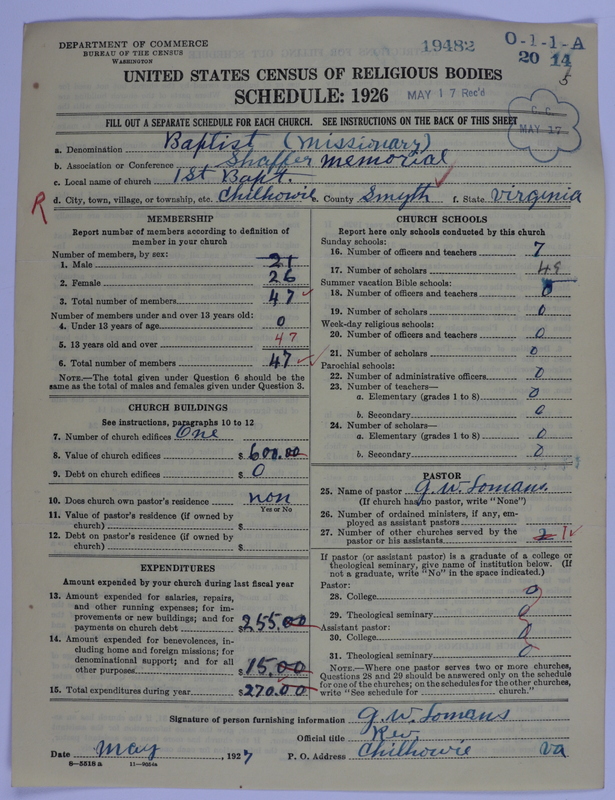 DEPARTMENT OF COMMERCE
BUREAU OF THE CENSUS
WASHINGTON
19482
O-1-1-A
20 14
5
UNITED STATES CENSUS OF RELIGIOUS BODIES
SCHEDULE: 1926
MAY 17 Rec'd
C. C.
MAY 17
FILL OUT A SEPARATE SCHEDULE FOR EACH CHURCH. SEE INSTRUCTIONS ON THE BACK OF THIS SHEET
a. Denomination Baptist (Missionary)
b. Association or Conference Shaffer memorial
c. Local name of church 1st Bapt.
R d. City, town, village, or township, etc. Chilhowie e. County Smyth f. State Virginia
MEMBERSHIP
Report number of members according to definition of
member in your church
Number of members, by sex:
1. Male 21
2. Female 26
3. Total number of members 47
Number of members under and over 13 years old:
4. Under 13 years of age 0
5. 13 years old and over 47
6. Total number of members 47
NOTE.—The total given under Question 6 should be the
same as the total of males and females given under Question 3.
CHURCH BUILDINGS
See instructions, paragraphs 10 to 12
7. Number of church edifices One
8. Value of church edifices $ 600.00
9. Debt on church edifices $ 0
10. Does church own pastor's residence non
Yes or No
11. Value of pastor's residence (if owned by
church) $
12. Debt on pastor's residence (if owned by
church) $
EXPENDITURES
Amount expended by your church during last fiscal year
13. Amount expended for salaries, repairs,
and other running expenses; for im-
provements or new buildings; and for
payments on church debt $ 255.00
14. Amount expended for benevolences, in-
cluding home and foreign missions; for
denominational support; and for all
other purposes $ 15.00
15. Total expenditures during year $ 270.00
CHURCH SCHOOLS
Report here only schools conducted by this church
Sunday schools:
16. Number of officers and teachers 7
17. Number of scholars 49
Summer vacation Bible schools:
18. Number of officers and teachers 0
19. Number of scholars 0
Week-day religious schools:
20. Number of officers and teachers 0
21. Number of scholars 0
Parochial schools:
22. Number of administrative officers 0
23. Number of teachers—
a. Elementary (grades 1 to 8) 0
b. Secondary 0
24. Number of scholars—
a. Elementary (grades 1 to 8) 0
b. Secondary 0
PASTOR
25. Name of pastor G. W. Lomans
(If church has no pastor, write "None")
26. Number of ordained ministers, if any, em-
ployed as assistant pastors
27. Number of other churches served by the
pastor or his assistants 2 1
If pastor (or assistant pastor) is a graduate of a college or
theological seminary, give name of institution below. (If
not a graduate, write "No" in the space indicated.)
Pastor:
28. College 0
29. Theological seminary 0
Assistant pastor:
30. College 0
31. Theological seminary 0
NOTE.—Where one pastor serves two or more churches,
Questions 28 and 29 should be answered only on the schedule
for one of the churches; on the schedules for the other churches,
write "See schedule for church."
Signature of person furnishing information G. W. Lomans
Official title Rev.
Date May, 1927 P. O. Address Chilhowie Va
8—5518 a